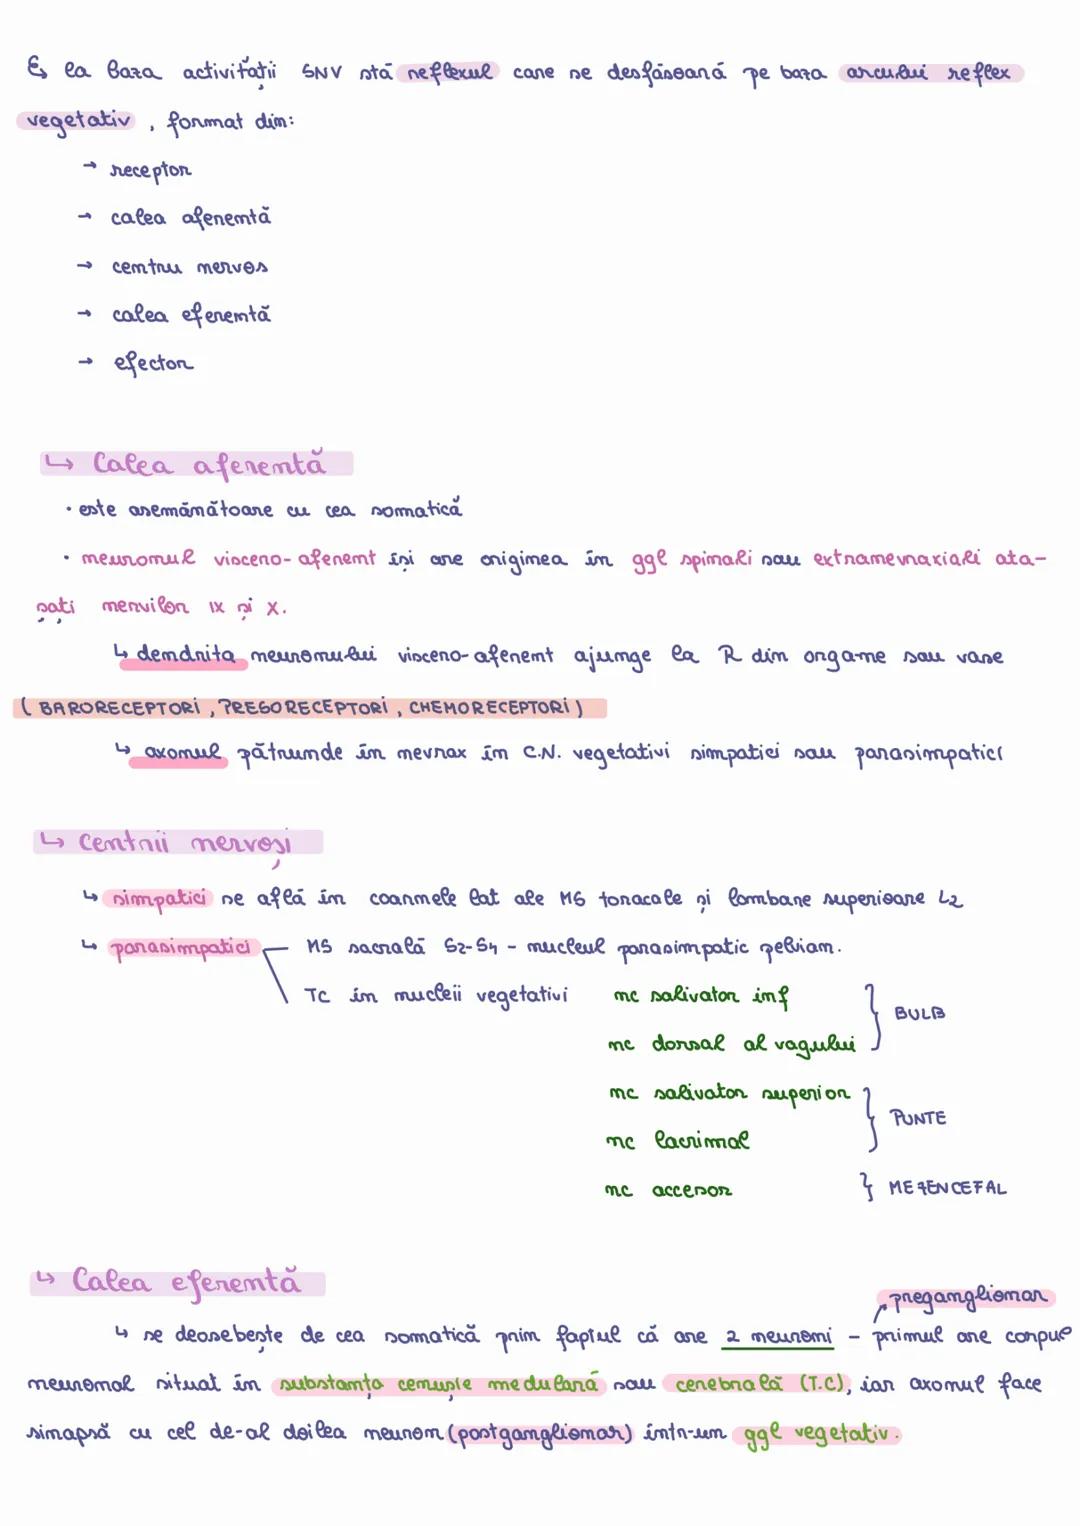 la baza activității SNV stă reflexul care se desfășoară pe baza arcului reflex
vegetativ, format din:
→ receptor
→ calea aferentă
→ centru nervos
→ calea eferentă
→ efector
↳ Calea aferentă
· este asemănătoare cu cea somatică
· neuronul viscero-aferent își are originea în ggl spinali sau extranevraxiali ata-
șați nervilor IX și X.
↳ dendrita neuronului viscero-aferent ajunge la R din organe sau vase
(BARORECEPTORI, PRESORECEPTORI, CHEMORECEPTORI)
↳ axonul pătrunde în nevrax în C.N. vegetativi simpatici sau parasimpatici
↳ Centrii nervoși
↳ simpatici se află în coarnele lat ale MS toracale și lombare superioare L2
↳ parasimpatici MS sacrală S2-S4 - nucleul parasimpatic pelvian.
TC în nucleii vegetativi nc salivator inf
BULB
nc dorsal al vagului
nc salivator superior
PUNTE
nc lacrimal
nc accesor } MEZENCEFAL
↳ Calea eferentă
preganglionar
↳ se deosebește de cea somatică prin faptul că are 2 neuroni - primul are corpul
neuronal situat în substanța cenușie medulară sau cerebrală (T.C), iar axonul face
sinapsă cu cel de-al doilea neuron (postganglionar) într-un ggl vegetativ.